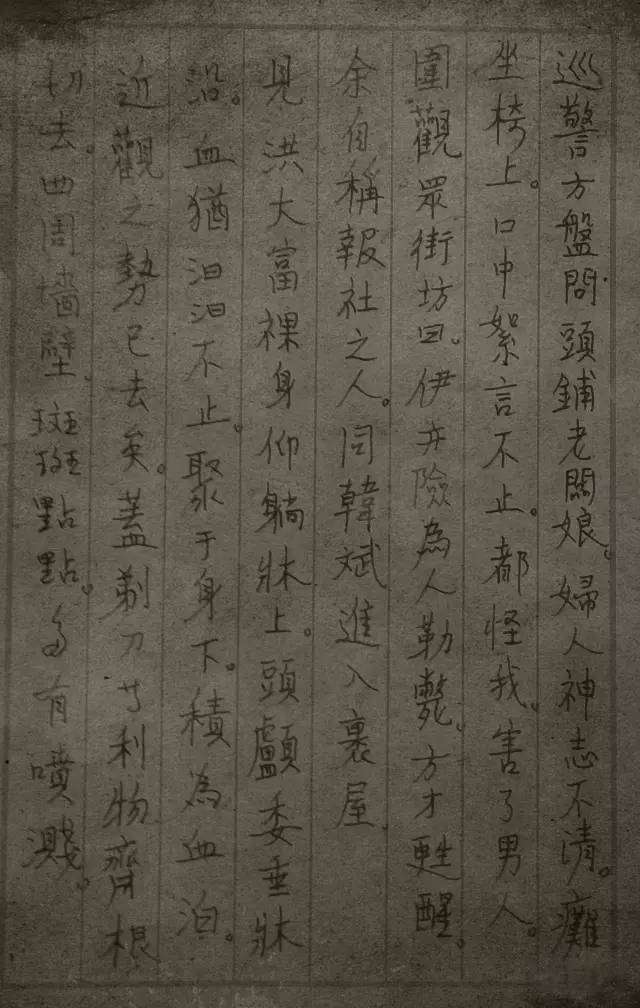 巡警方盤問頭鋪老闆娘。婦人神志不清。癱
坐椅上。口中絮言不止。都怪我。害了男人。
圍觀眾街坊曰。伊亦險為人勒斃。方才甦醒。
余自稱報社之人。同韓斌進入裏屋
見洪大富裸身仰躺牀上。頭顱委垂牀
沿。血猶汩汩不止。聚于身下。積為血泊。
近觀之勢已去矣。蓋剃刀等利物齊根
切去。四周墻壁。斑斑點點。多有噴濺。